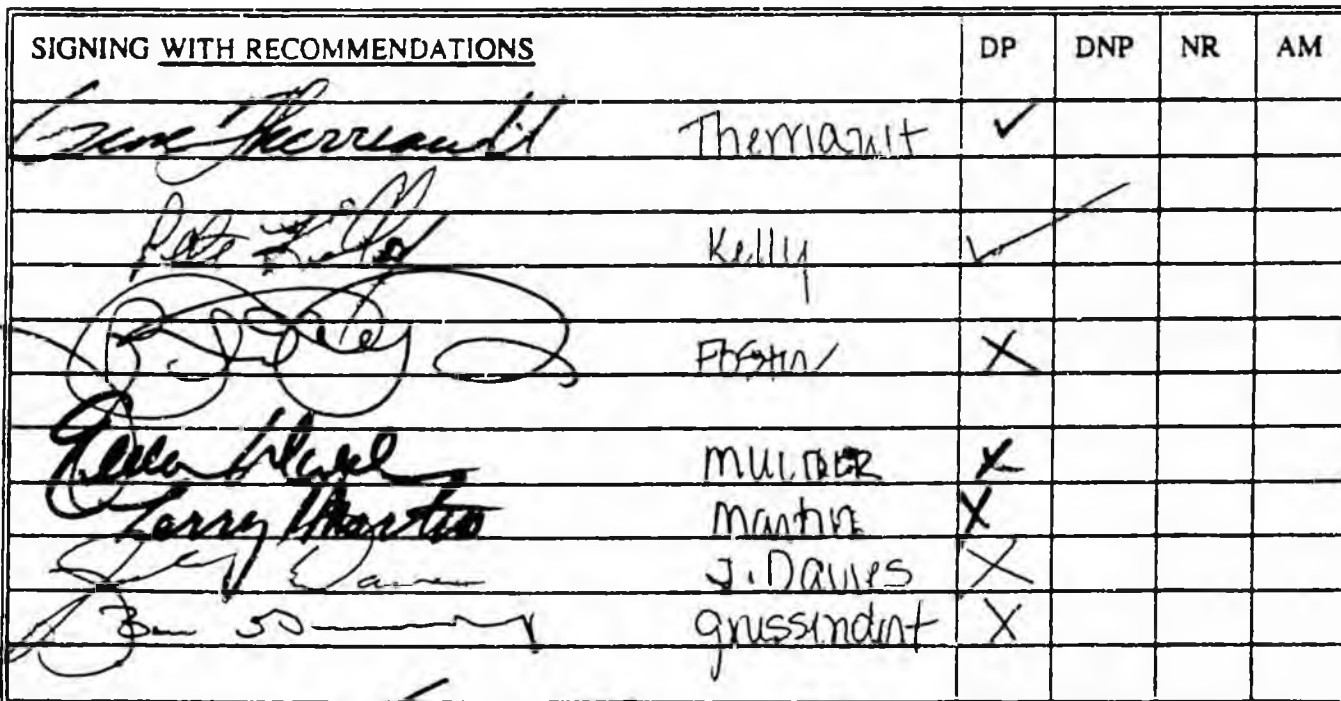 SIGNING WITH RECOMMENDATIONS DP DNP NR AM
Gene Therriault Therriault ✓
Pete Kelly Kelly ✓
Foster X
MULDER X
Larry Martin Martin X
J. Davies X
Grussendorf X